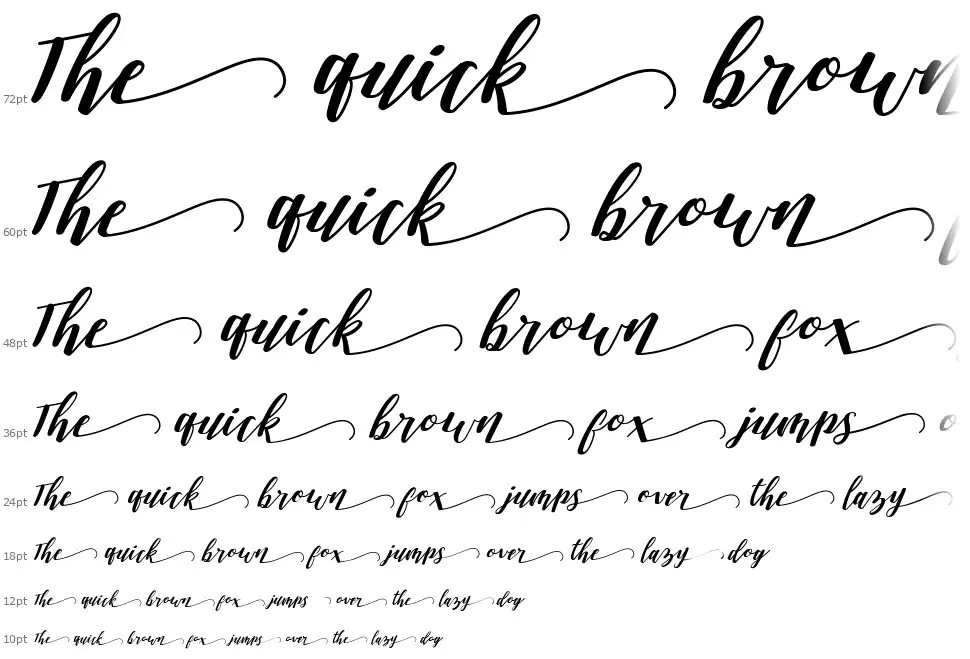 72pt The quick brown
60pt The quick brown
48pt The quick brown fox
36pt The quick brown fox jumps o
24pt The quick brown fox jumps over the lazy
18pt The quick brown fox jumps over the lazy dog
12pt The quick brown fox jumps over the lazy dog
10pt The quick brown fox jumps over the lazy dog